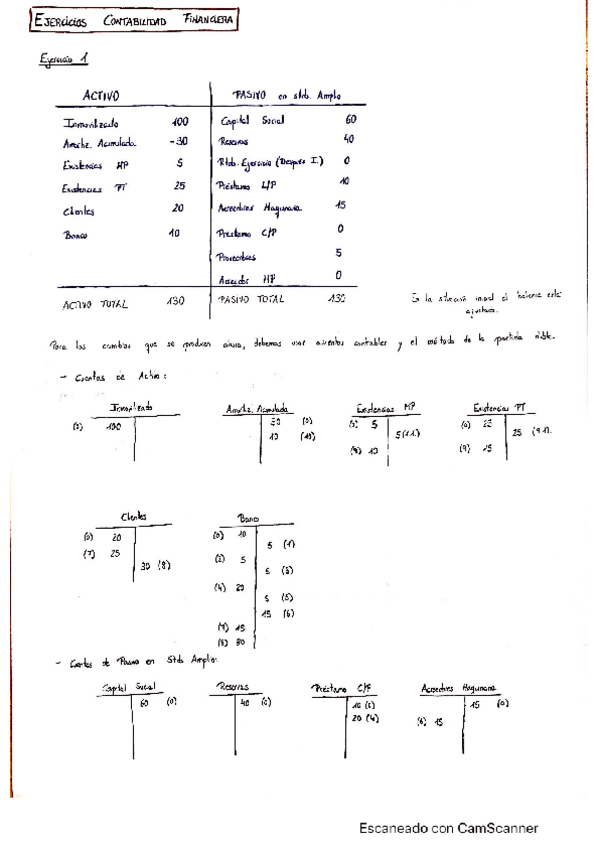 EJERCICIOS CONTABILIDAD FINANCIERA
Ejercicio 1
ACTIVO PASIVO en stdo. Amplio
Inmovilizado 100 Capital Social 60
Amortiz. Acumulada -30 Reservas 40
Existencias MP 5 Rtdo. Ejercicio (Después I.) 0
Existencias PT 25 Préstamo L/P 10
Clientes 20 Acreedores Maquinaria 15
Banco 10 Préstamo C/P 0
Proveedores 5
Acreedor HP 0
ACTIVO TOTAL 130 PASIVO TOTAL 130
En la situación inicial el balance está
ajustado.
Para los cambios que se producen ahora, debemos usar asientos contables y el método de la partida doble.
- Cuentas de Activo:
Inmovilizado Amortiz. Acumulada Existencias MP Existencias PT
100 30 (0) 5 (0) 25
10 (10) 5 (11) 25
10 (9) 15
Clientes Banco
(0) 20 (0) 10
(7) 25 5 (1)
(2) 5
30 (8) 5 (3)
(4) 20
5 (5)
15 (6)
(7) 15
(8) 30
- Cuentas de Pasivo en Stdo Amplio:
Capital Social Reservas Préstamo C/P Acreedores Maquinaria
60 (0) 40 (0) 15 (0)
20 (4) (6) 15
Escaneado con CamScanner